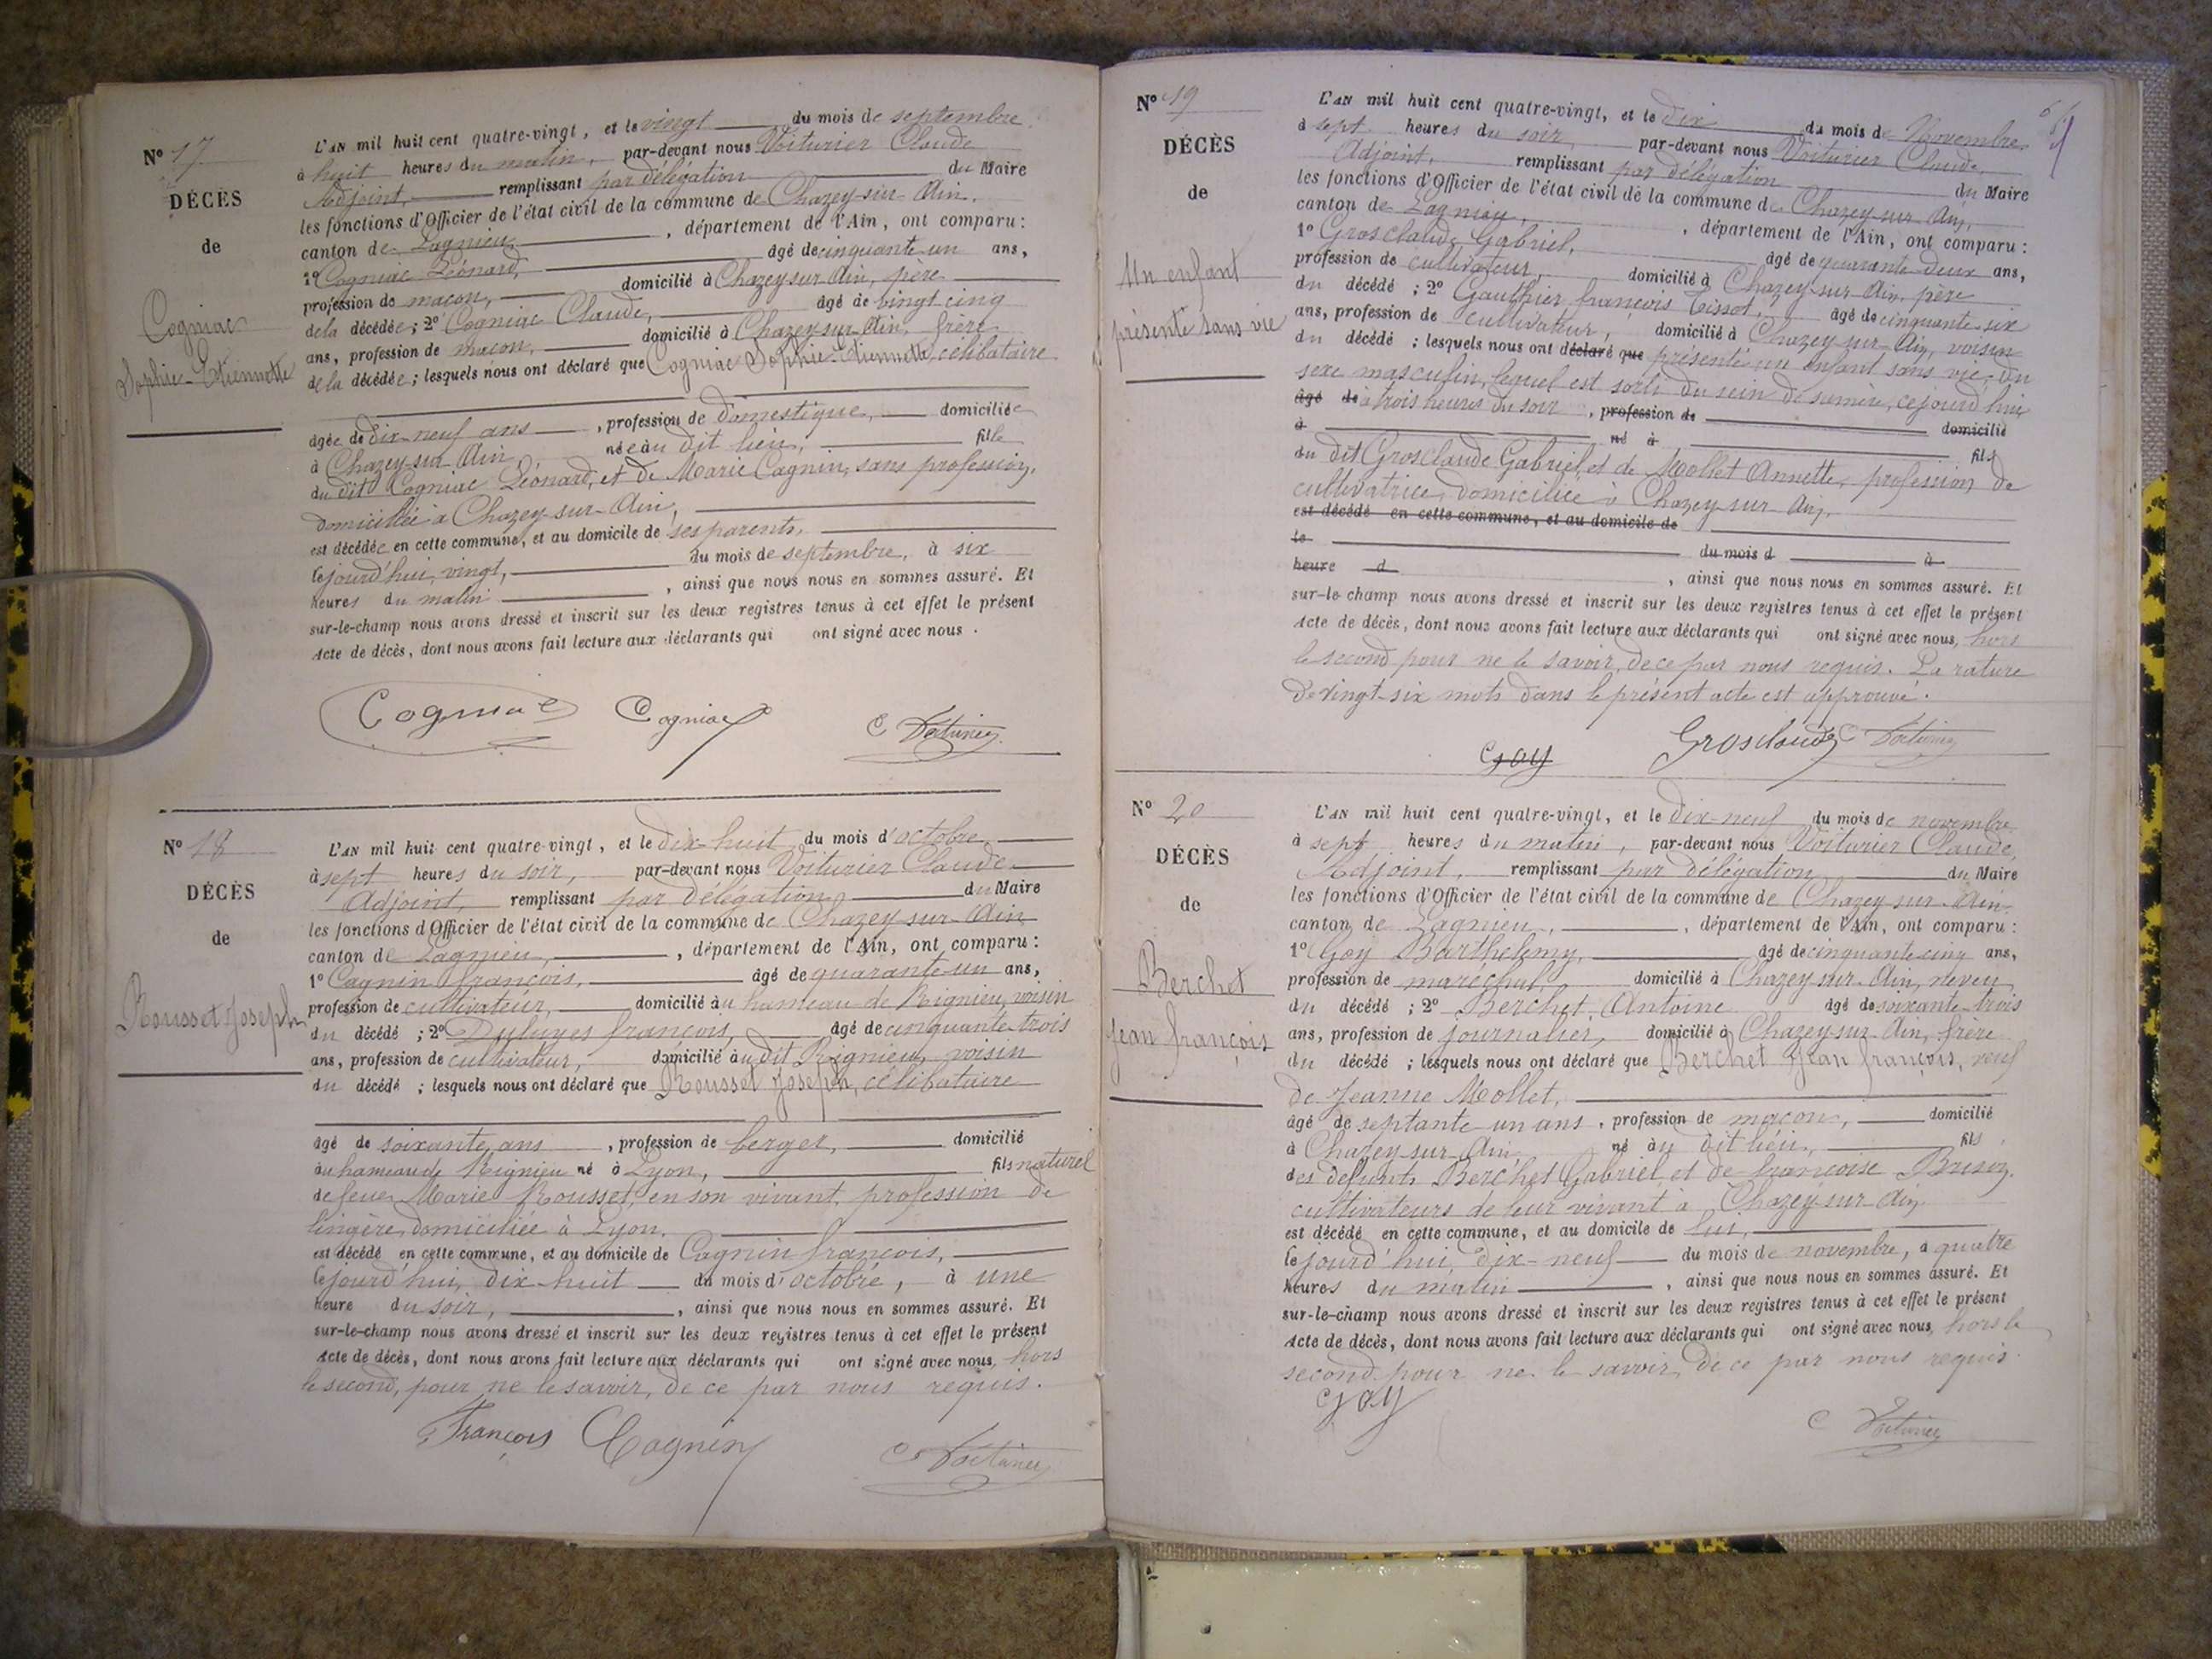 N° 17
DÉCÈS
de
Cogniac
Sophie-Etiennette
L'AN mil huit cent quatre-vingt, et le vingt du mois de septembre
à huit heures du matin, par-devant nous Voiturier Claude
Adjoint, remplissant par délégation du Maire
les fonctions d'Officier de l'état civil de la commune de Chazey-sur-Ain,
canton de Lagnieu, département de l'Ain, ont comparu :
1° Cogniac Léonard, âgé de cinquante un ans,
profession de maçon, domicilié à Chazey-sur-Ain, père
de la décédée ; 2° Cogniac Claude, âgé de vingt cinq
ans, profession de maçon, domicilié à Chazey-sur-Ain, frère
de la décédée ; lesquels nous ont déclaré que Cogniac Sophie-Etiennette, célibataire
âgée de dix-neuf ans, profession de domestique, domiciliée
à Chazey-sur-Ain, née au dit lieu, fille
du dit Cogniac Léonard, et de Marie Cagnin, sans profession,
domiciliée à Chazey-sur-Ain,
est décédée en cette commune, et au domicile de ses parents,
cejourd'hui, vingt, du mois de septembre, à six
heures du matin, ainsi que nous nous en sommes assuré. Et
sur-le-champ nous avons dressé et inscrit sur les deux registres tenus à cet effet le présent
Acte de décès, dont nous avons fait lecture aux déclarants qui ont signé avec nous.
Cogniac Cogniac C Voiturier
N° 18
DÉCÈS
de
Rousset Joseph
L'AN mil huit cent quatre-vingt, et le dix-huit du mois d'octobre
à sept heures du soir, par-devant nous Voiturier Claude
Adjoint, remplissant par délégation du Maire
les fonctions d'Officier de l'état civil de la commune de Chazey-sur-Ain
canton de Lagnieu, département de l'Ain, ont comparu :
1° Cagnin françois, âgé de quarante-un ans,
profession de cultivateur, domicilié au hameau de Rignieu, voisin
du décédé ; 2° françois, âgé de cinquante-trois
ans, profession de cultivateur, domicilié au dit Rignieu, voisin
du décédé ; lesquels nous ont déclaré que Rousset Joseph, célibataire
âgé de soixante ans, profession de berger, domicilié
au hameau de Rignieu né à Lyon, fils naturel
de feue Marie Rousset, en son vivant, profession de
lingère, domiciliée à Lyon.
est décédé en cette commune, et au domicile de Cagnin françois,
cejourd'hui, dix-huit du mois d'octobre, à une
heure du soir, ainsi que nous nous en sommes assuré. Et
sur-le-champ nous avons dressé et inscrit sur les deux registres tenus à cet effet le présent
Acte de décès, dont nous avons fait lecture aux déclarants qui ont signé avec nous, hors
le second, pour ne le savoir, de ce par nous requis.
François Cagnin C Voiturier
N° 19
DÉCÈS
de
Un enfant
présenté sans vie
L'AN mil huit cent quatre-vingt, et le dix du mois de Novembre
à sept heures du soir par-devant nous Voiturier Claude,
Adjoint, remplissant par délégation du Maire
les fonctions d'Officier de l'état civil de la commune de Chazey-sur-Ain,
canton de Lagnieu, département de l'Ain, ont comparu :
1° Grosclaude Gabriel, âgé de quarante-deux ans,
profession de cultivateur, domicilié à Chazey-sur-Ain, père
du décédé ; 2° Gauthier françois Tissot, âgé de cinquante-six
ans, profession de cultivateur, domicilié à Chazey-sur-Ain, voisin
du décédé ; lesquels nous ont déclaré que présenté un enfant sans vie, du
sexe masculin, lequel est sorti du sein de sa mère, cejourd'hui
âgé de à trois heures du soir, profession de
à né à domicilié
fils
du dit Grosclaude Gabriel, et de Mollet Annette, profession de
cultivatrice, domiciliée à Chazey-sur-Ain,
est décédé en cette commune, et au domicile de
le du mois d à
heure d, ainsi que nous nous en sommes assuré. Et
sur-le-champ nous avons dressé et inscrit sur les deux registres tenus à cet effet le présent
Acte de décès, dont nous avons fait lecture aux déclarants qui ont signé avec nous, hors
le second pour ne le savoir, de ce par nous requis. La rature
de vingt-six mots dans le présent acte est approuvé.
Goy Grosclaude C Voiturier
N° 20
DÉCÈS
de
Berchet
Jean françois
L'AN mil huit cent quatre-vingt, et le dix-neuf du mois de novembre
à sept heures du matin, par-devant nous Voiturier Claude,
Adjoint, remplissant par délégation du Maire
les fonctions d'Officier de l'état civil de la commune de Chazey-sur-Ain
canton de Lagnieu, département de l'Ain, ont comparu :
1° Goy Barthelemy, âgé de cinquante-cinq ans,
profession de maréchal, domicilié à Chazey-sur-Ain, neveu
du décédé ; 2° Berchet, Antoine âgé de soixante-trois
ans, profession de journalier, domicilié à Chazey-sur-Ain, frère
du décédé ; lesquels nous ont déclaré que Berchet Jean françois, veuf
de Jeanne Mollet,
âgé de septante-un ans, profession de maçon, domicilié
à Chazey-sur-Ain né au dit lieu, fils
des defunts Berchet Gabriel et de françoise
cultivateurs de leur vivant à Chazey-sur-Ain,
est décédé en cette commune, et au domicile de lui,
cejourd'hui, dix-neuf du mois de novembre, à quatre
heures du matin, ainsi que nous nous en sommes assuré. Et
sur-le-champ nous avons dressé et inscrit sur les deux registres tenus à cet effet le présent
Acte de décès, dont nous avons fait lecture aux déclarants qui ont signé avec nous, hors le
second pour ne le savoir, de ce par nous requis.
Goy C Voiturier